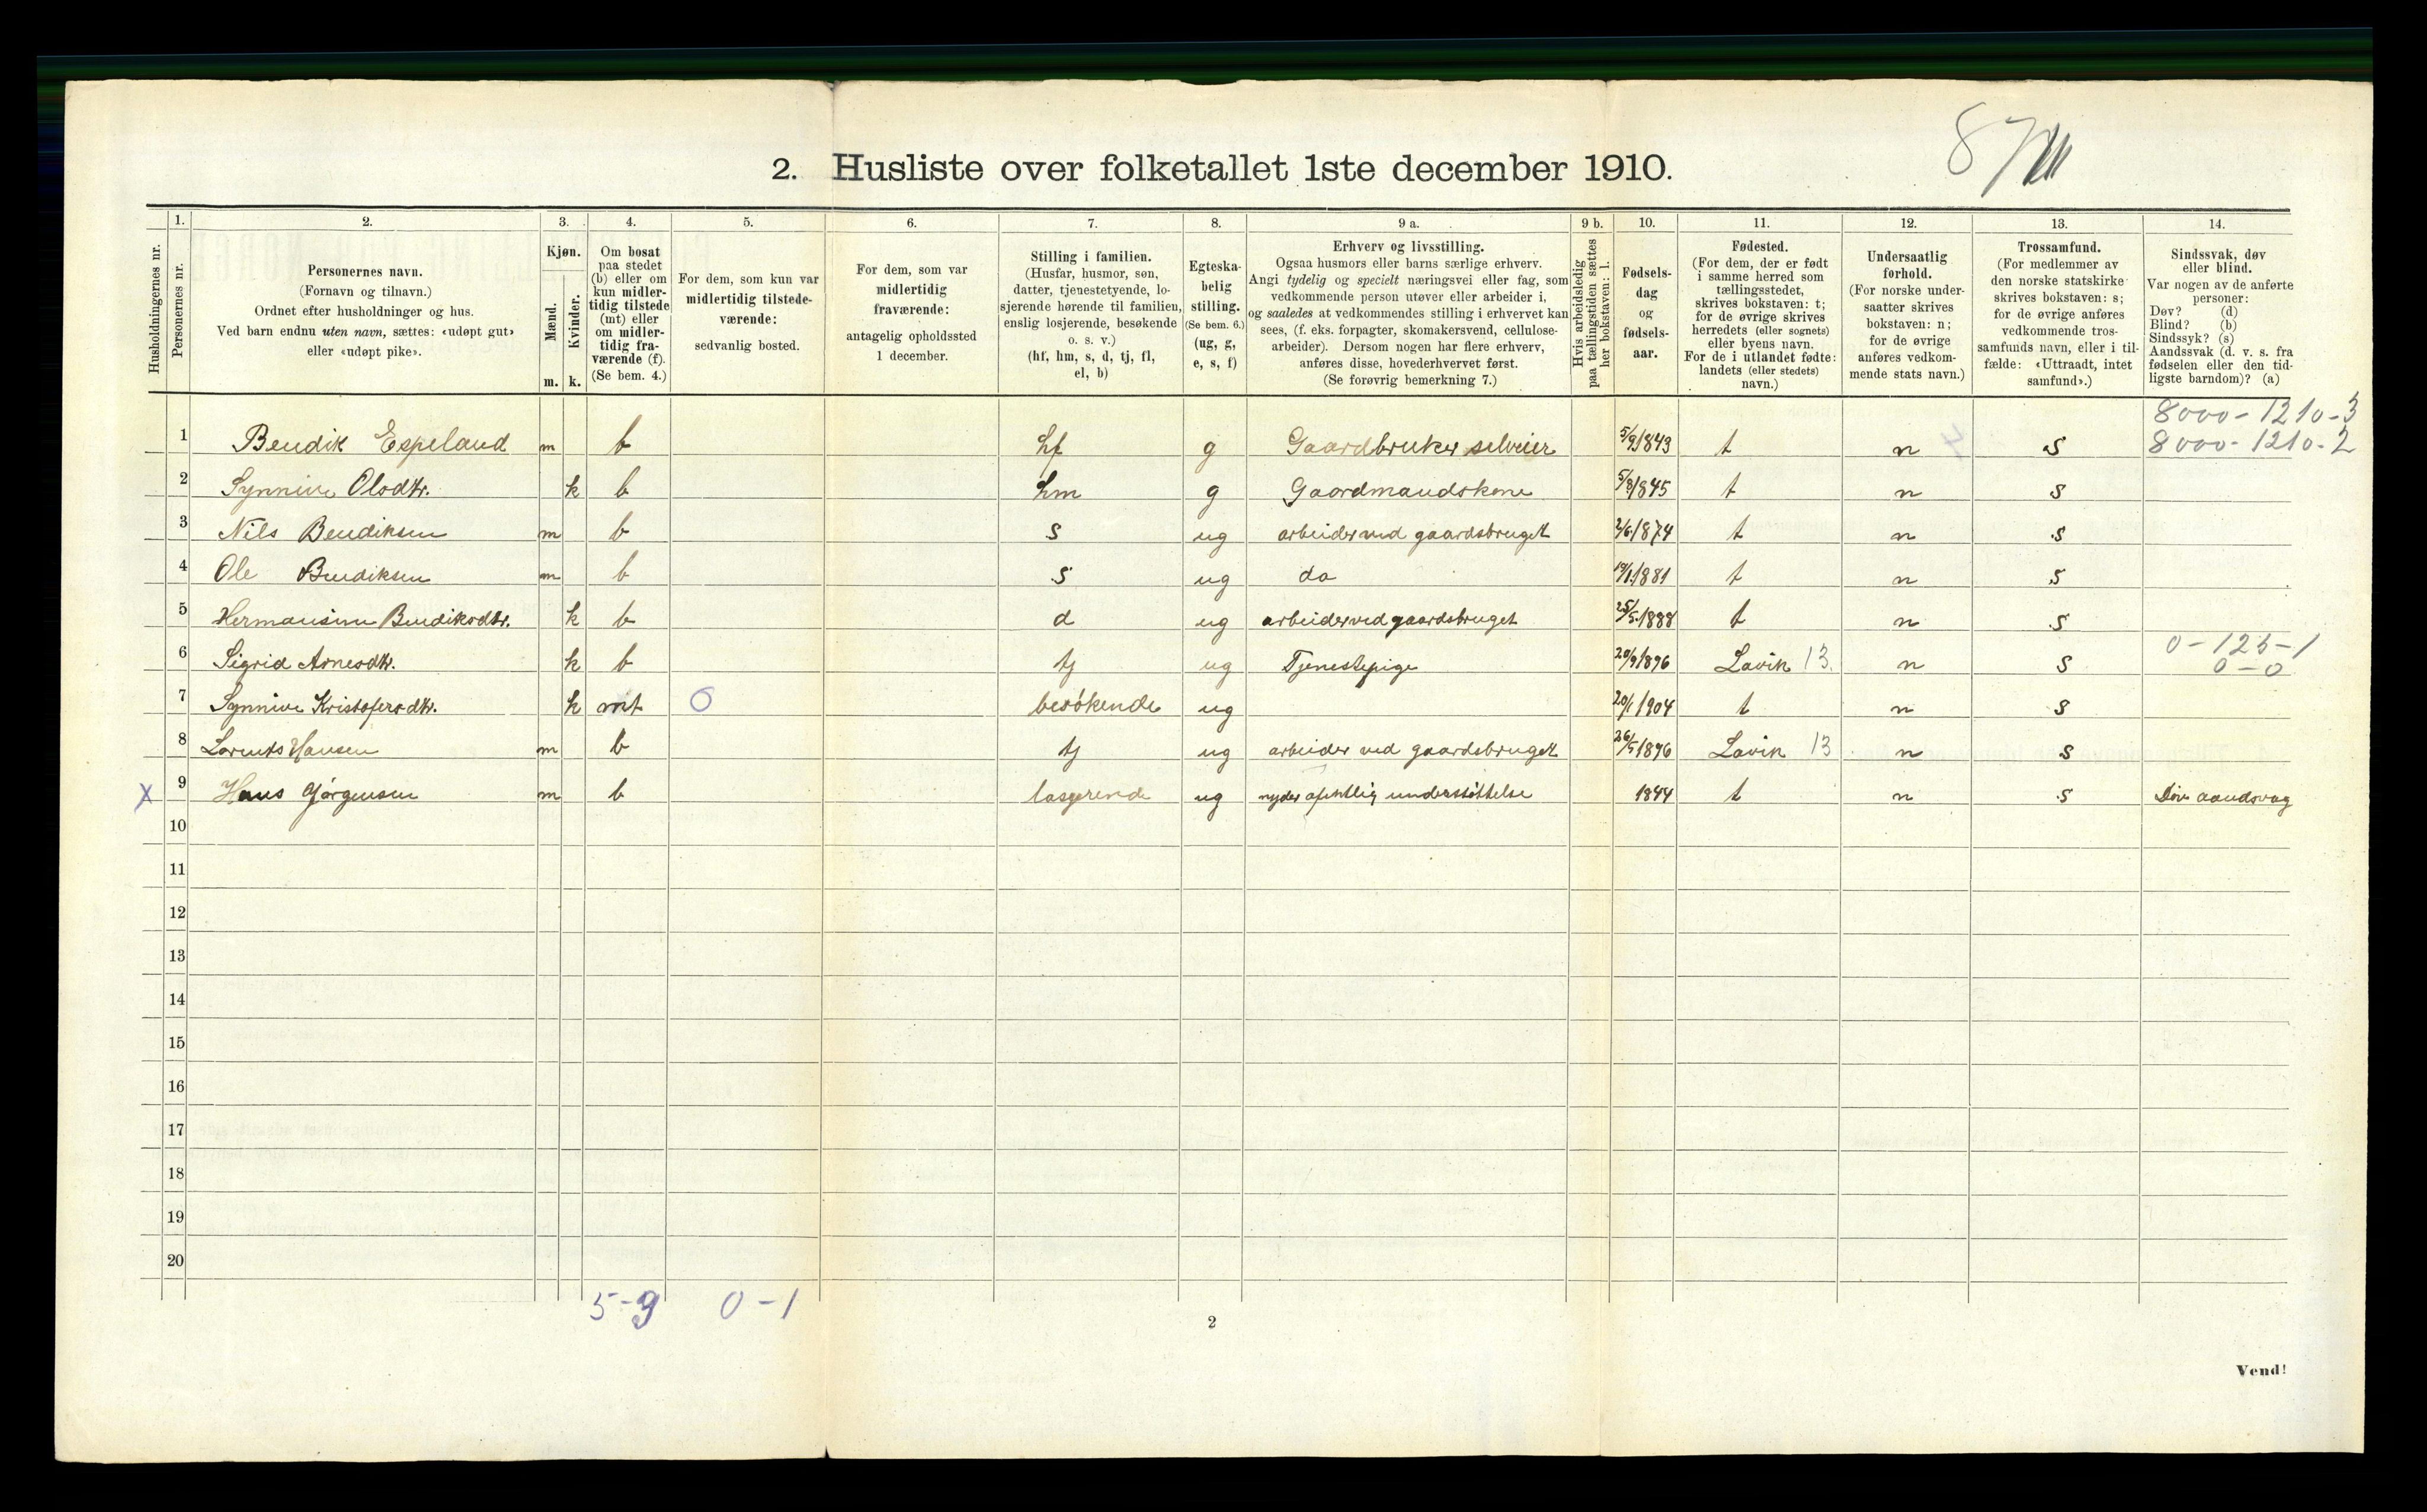 87
2. Husliste over folketallet 1ste december 1910.
Husholdningernes nr.
1. Personernes nr.
2. Personernes navn. (Fornavn og tilnavn.) Ordnet efter husholdninger og hus. Ved barn endnu uten navn, sættes: «udøpt gut» eller «udøpt pike».
3. Kjøn. Mænd. m. Kvinder. k.
4. Om bosat paa stedet (b) eller om kun midlertidig tilstede (mt) eller om midlertidig fraværende (f). (Se bem. 4.)
5. For dem, som kun var midlertidig tilstedeværende: sedvanlig bosted.
6. For dem, som var midlertidig fraværende: antagelig opholdssted 1 december.
7. Stilling i familien. (Husfar, husmor, søn, datter, tjenestetyende, losjerende hørende til familien, enslig losjerende, besøkende o. s. v.) (hf, hm, s, d, tj, fl, el, b)
8. Egteskabelig stilling. (Se bem. 6.) (ug, g, e, s, f)
9 a. Erhverv og livsstilling. Ogsaa husmors eller barns særlige erhverv. Angi tydelig og specielt næringsvei eller fag, som vedkommende person utøver eller arbeider i, og saaledes at vedkommendes stilling i erhvervet kan sees, (f. eks. forpagter, skomakersvend, cellulosearbeider). Dersom nogen har flere erhverv, anføres disse, hovederhvervet først. (Se forøvrig bemerkning 7.)
9 b. Hvis arbeidsledig paa tællingstiden sættes her bokstaven: l.
10. Fødselsdag og fødselsaar.
11. Fødested. (For dem, der er født i samme herred som tællingsstedet, skrives bokstaven: t; for de øvrige skrives herredets (eller sognets) eller byens navn. For de i utlandet fødte: landets (eller stedets) navn.)
12. Undersaatlig forhold. (For norske undersaatter skrives bokstaven: n; for de øvrige anføres vedkommende stats navn.)
13. Trossamfund. (For medlemmer av den norske statskirke skrives bokstaven: s; for de øvrige anføres vedkommende trossamfunds navn, eller i tilfælde: «Uttraadt, intet samfund».)
14. Sindssvak, døv eller blind. Var nogen av de anførte personer: Døv? (d) Blind? (b) Sindssyk? (s) Aandssvak (d. v. s. fra fødselen eller den tidligste barndom)? (a)
8000-1210-3
1 Bendik Espeland m b hf g Gaardbruker selveier 5/9 1843 t n s 8000-1210-2
2 Synnive Olsdtr. k b hm g Gaardmandskone 5/8 1845 t n s
3 Nils Bendiksen m b s ug arbeider ved gaardsbruget 2/6 1874 t n s
4 Ole Bendiksen m b s ug do 1881 t n s
5 Hermansine Bendiksdtr. k b d ug arbeider ved gaardsbruget 25/5 1888 t n s
0-125-1
6 Sigrid Arnesdtr. k b tj ug Tjenestepige 20/9 1896 Lavik 13. n s 0-0
7 Synnive Kristofersdtr. k mt 0 besökende ug 20/1 1904 t n s
8 Lorents Hansen m b tj ug arbeider ved gaardsbruget 26/5 1896 Lavik 13 n s
X 9 Hans Gjörgensen m b losjerende ug nyder ofentlig understöttelse 1844 t n s Döv aandsvag
10
11
12
13
14
15
16
17
18
19
20
5-9 0-1
2
Vend!